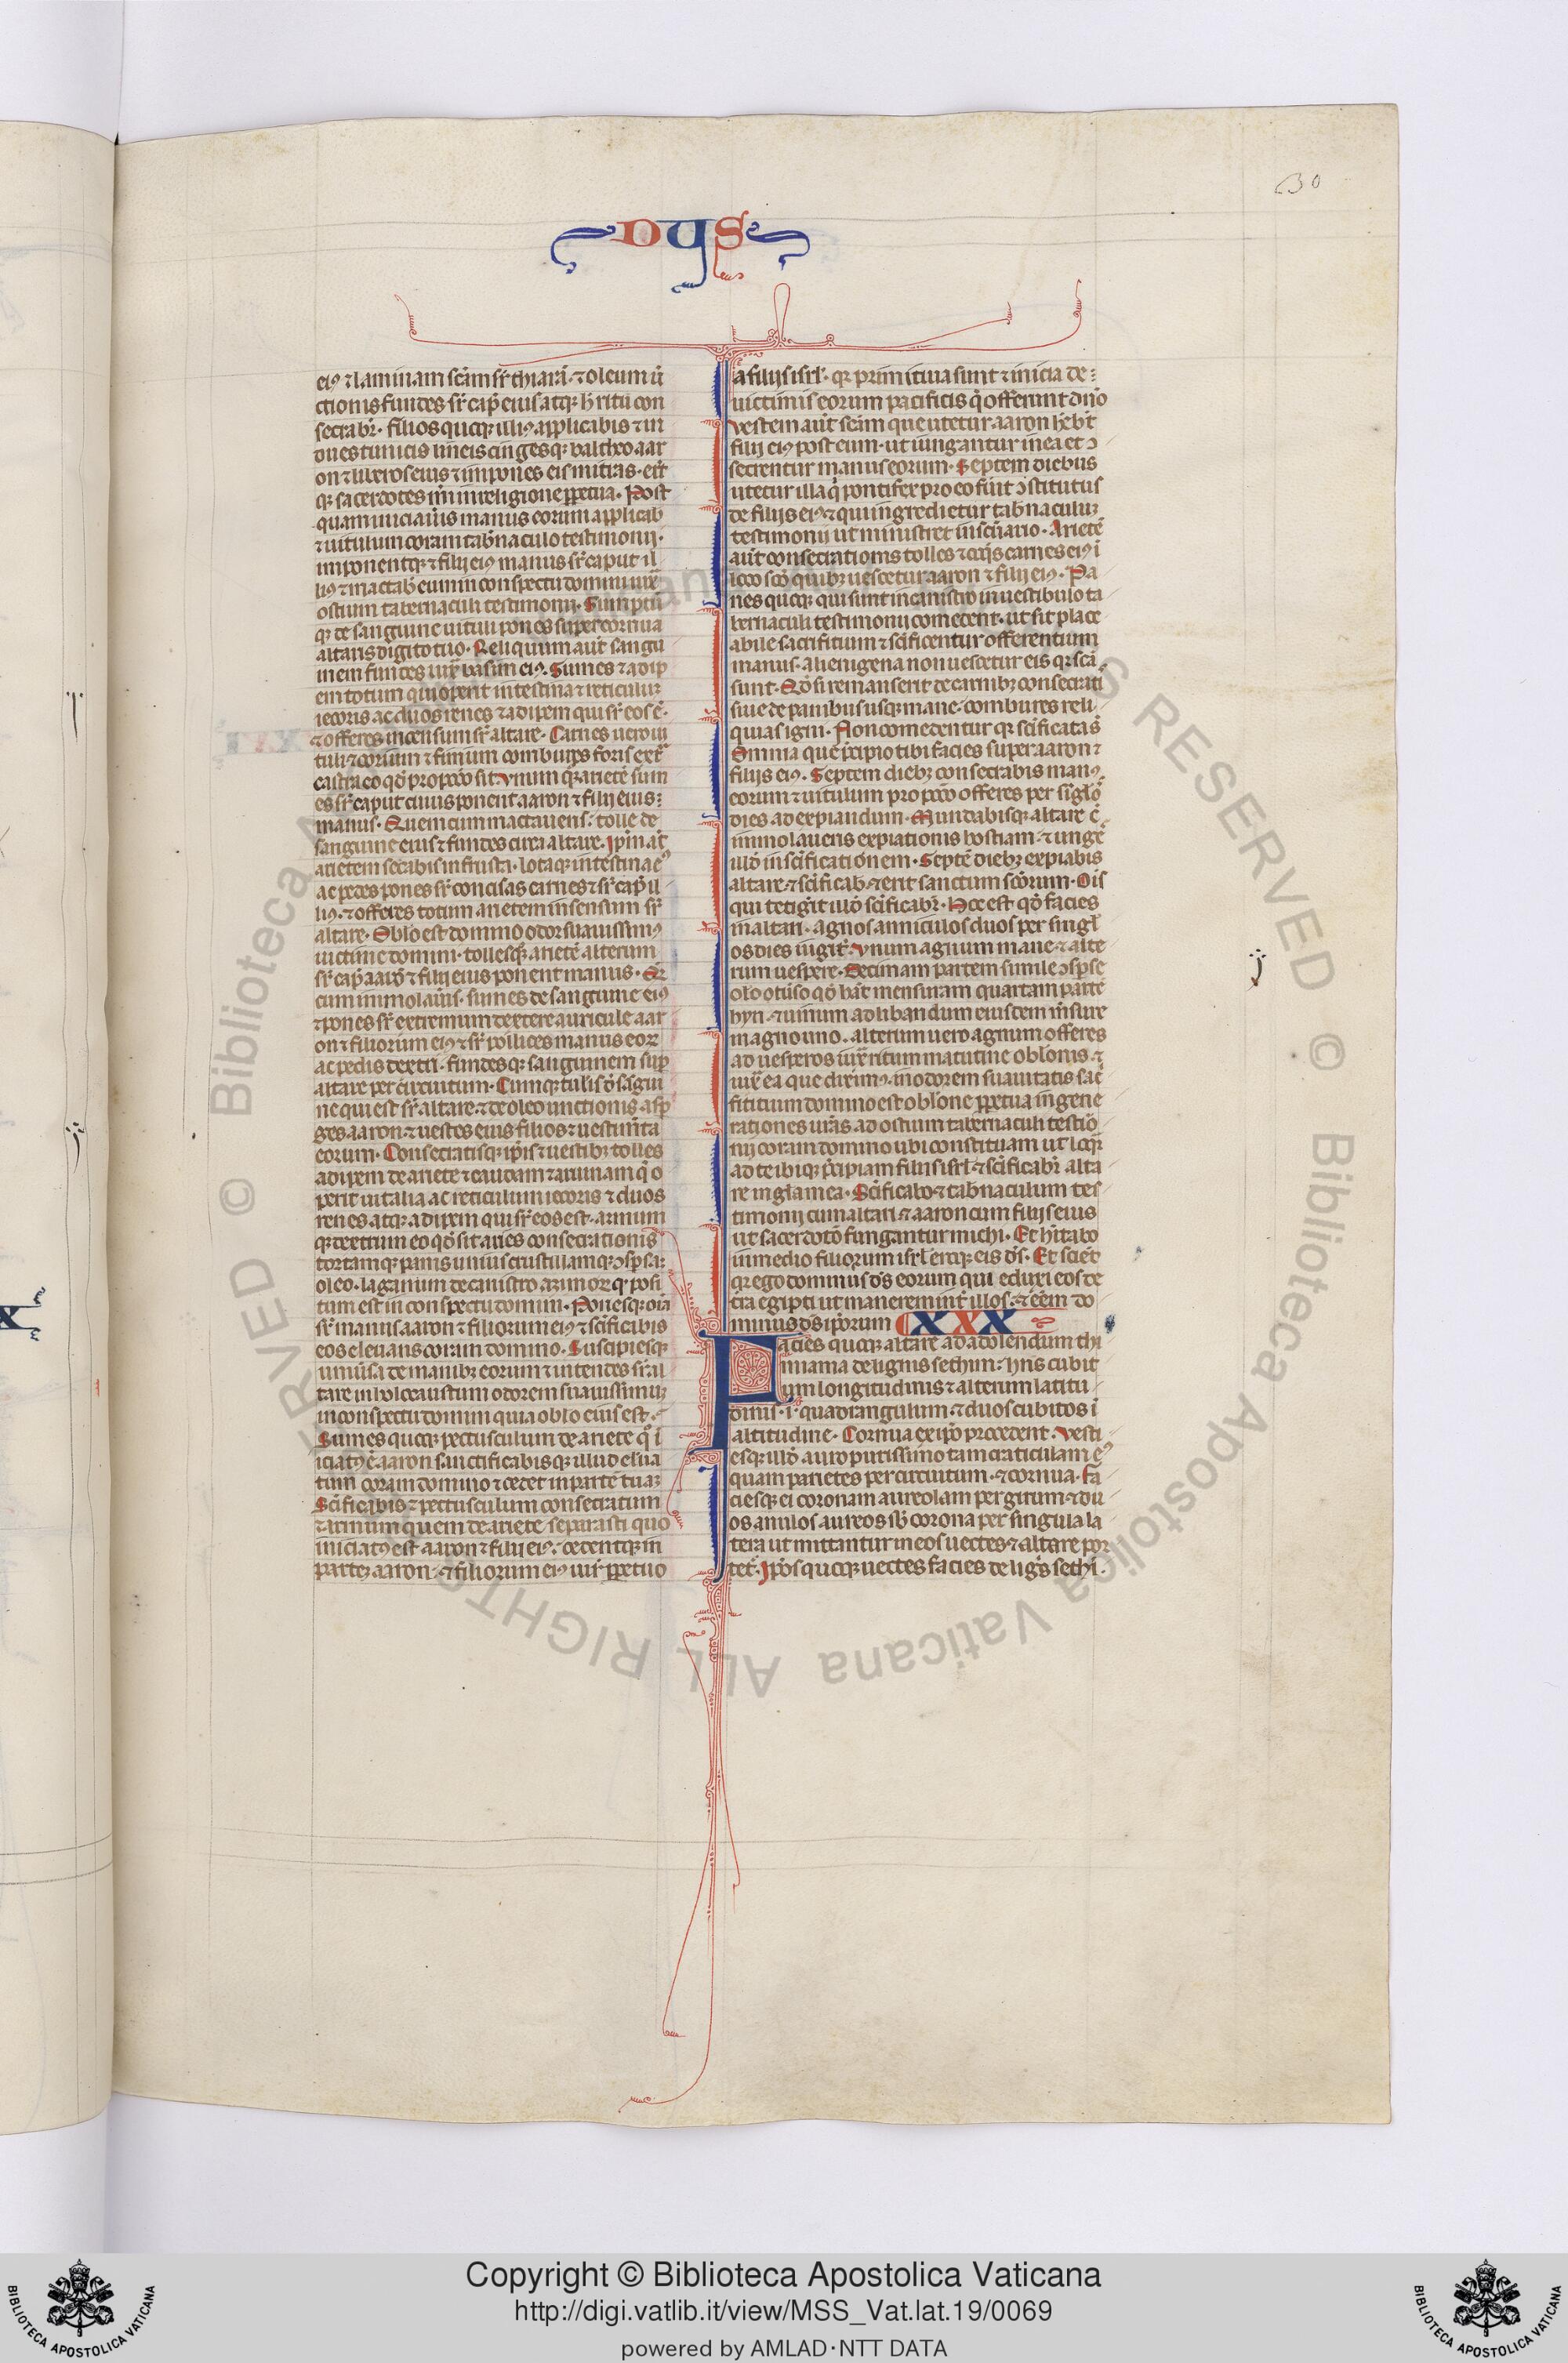 30
DYS
ei9 ⁊ laminam sc̃am sr̃ thiarã · ⁊ oleum ũ
ctionis fundes sr̃ cap̃ eius atq; h̃ ritu con
secrabr̃ · filios quoq; illi9 applicabis ⁊ in
dues tunicis lineis cingesq; baltheo aar
on ⁊ liberos eius ⁊ impones eis mitras · erũt
q; sacerdotes m̃ in religione ꝑpetua · Post
quam iniciaũis manus eorum applicab̃
⁊ uitulum coram tab̃naculo testimonij ·
imponentq; ⁊ filij ei9 manus sr̃ caput il
li9 ⁊ mactab̃ eum in conspectu domini iux̃
ostium tabernaculi testimonij · Sumptũ
q; de sanguine uituli pones super cornua
altaris digito tuo · Reliquum aũt sangu
inem fundes iux̃ basim ei9 · Sumes ⁊ adip
em totum qui operit intestina ⁊ reticulũ
iecoris ac duos renes ⁊ adipem qui sr̃ eos ẽ ·
⁊ offeres incensum sr̃ altare · Carnes uero ui
tuli ⁊ corium ⁊ fimum combures foris extr̃
castra eo qđ pro pccõ sit · Vnum q; arietẽ sum
es sr̃ caput cuius ponent aaron ⁊ filij eius
manus · Quem cum mactaueris tolle de
sanguine eius ⁊ fundes circa altare · Ip̃m aũt
arietem secabis in frusta · lotaq; intestina e9
ac pedes pones sr̃ concisas carnes ⁊ sr̃ cap̃ il
li9 · ⁊ offeres totum arietem in sensum sr̃
altare · Oblõ est domino odor suauissim9
uictime domini · tollesq; arietẽ alterum
sr̃ cap̃ aarõ ⁊ filij eius ponent manus · Qẽ
cum immolaũis · sumes de sanguine ei9
⁊ pones sr̃ extremum dextere auricule aar
on ⁊ filiorum ei9 ⁊ sr̃ pollices manus eoꝝ
ac pedis dextri · fundesq; sanguinem sup̃
altare per circuitum · Cumq; tulis đ sãgui
ne qui est sr̃ altare · ⁊ de oleo unctionis asp̃
ges aaron ⁊ uestes eius filios ⁊ uestim̃ta
eorum · Consecratisq; ip̃is ⁊ uestib; tolles
adipem de ariete ⁊ caudam ⁊ aruinam q̃ o
perit uitalia ac reticulum iecoris ⁊ duos
renes atq; adipem qui sr̃ eos est · armum
q; dextrum eo qđ sit aries consecrationis
tortamq; panis unius crustulam q; ɔspsã
oleo · laganum de canistro azimoꝝ q̃ posi
tum est in conspectu domini · Ponesq; oĩa
sr̃ manus aaron ⁊ filiorum ei9 ⁊ sc̃ificabis
eos eleuans coram domino · Suscipiesq;
uniũsa de manib; eorum ⁊ intendes sr̃ al
tare in holocaustum odorem suauissimũ
in conspectu domini quia oblõ eius est ·
Sumes quoq; pectusculum de ariete q̃ i
iciat9 ẽ aaron sanctificabisq; illud eleua
tum coram domino ⁊ cedet in partẽ tuaꝫ
Sc̃ificabis ⁊ pectusculum consecratum
⁊ armum quem de ariete separasti quo
iniciat9 est aaron ⁊ filij ei9 · cedentq; in
parteꝫ aaron · ⁊ filiorum ei9 iur̃ ꝑpetuo
a filijs isrl̃ · q; primitiua sunt ⁊ inicia de
uictimis eorum pacificis q̃ offerunt dño
Vestem aũt sc̃am que utetur aaron hẽbt̃
filij ei9 post eum · ut iungantur in ea et ɔ
secrentur manus eorum · Septem diebus
utetur illa q̃ pontifex pro eo fũit ɔstitutus
de filijs ei9 ⁊ qui ingredietur tab̃naculuꝫ
testimonij ut ministret in sc̃uario · Arietẽ
aũt consecrationis tolles ⁊ coq̃s carnes ei9 ĩ
loco sc̃o quib; uescetur aaron ⁊ filij ei9 · Pa
nes quoq; qui sunt in canistro in uestibulo ta
bernaculi testimonij comedent · ut sit place
abile sacrifitium ⁊ sc̃ificentur offerentium
manus · alienigena non uescetur eis q; sc̃a
sunt · Qđ si remanserit de carnib; consecrati
siue de panibus usq; mane · combures reli
quias igni · Non comedentur q; sc̃ificata sũt
Omnia que p̃cipio tibi facies super aaron ⁊
filijs ei9 · Septem dieb; consecrabis man9
eorum ⁊ uitulum pro pccõ offeres per sĩglõ
dies ad expiandum · Mundabisq; altare c̃
immolaueris expiationis hostiam · ⁊ ungẽ
illđ in sc̃ificationem · Septẽ dieb; expiabis
altare · ⁊ sc̃ificab̃ · ⁊ erit sanctum sc̃orum · Oĩs
qui tetigit illđ sc̃ificabr̃ · Hoc est qđ facies
in altari · agnos anniculos duos per singl̃
os dies iugit̃ · Vnum agnum mane · ⁊ alte
rum uespere · Decimam partem simile ɔspse
oleo otũso qđ hãt mensuram quartam partẽ
hyn · ⁊ uinum ad libandum eiusdem m̃sure
in agno uno · alterum uero agnum offeres
ad uesperos iux̃ ritum matutine oblõnis · ⁊
iux̃ ea que dixim9 · in odorem suauitatis sac̃
fititium domino est oblõne ꝑpetua in gene
rationes ur̃as ad ostium tabernaculi testiõ
nij coram domino ubi constituam ut loq̃r
ad te ibiq; p̃cipiam filijs isrl̃ · ⁊ sc̃ificabr̃ alta
re in gl̃a mea · Sc̃ificabo ⁊ tab̃naculum tes
timonij cum altari · ⁊ aaron cum filijs eius
ut sacerdotõ fungantur michi · Et hĩtabo
in medio filiorum isrl̃ eroq; eis ds̃ · Et sciẽt
q; ego dominus ds̃ eorum qui eduxi eos de
tr̃a egipti ut manerem int̃ illos · ⁊ eẽm do
minus ds̃ ip̃orum XXX
Facies quoq; altare ad adolendum thi
miama de lignis sethim · hñs cubit
um longitudinis ⁊ alterum latitu
dinis · i · quadrangulum · ⁊ duos cubitos ĩ
altitudine · Cornua ex ip̃o procedent · Vesti
esq; illđ auro purissimo tam craticulam e9
quam parietes per circuitum · ⁊ cornua · fa
ciesq; ei coronam aureolam per girum · ⁊ du
os anulos aureos sb̃ corona per singula la
tera ut mittantur in eos uectes · ⁊ altare por
tet̃ · Ip̃os quoq; uectes facies de lig̃s sethĩ ·
Copyright © Biblioteca Apostolica Vaticana
http://digi.vatlib.it/view/MSS_Vat.lat.19/0069
powered by AMLAD·NTT DATA
BIBLIOTECA APOSTOLICA VATICANA
BIBLIOTECA APOSTOLICA VATICANA
© Biblioteca Apostolica Vaticana ALL RIGHTS RESERVED